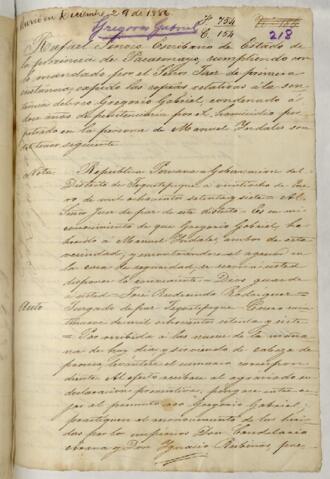 Murió en Diciembre 29 de 1882
F 754
C. 154
218
Gregorio Gabriel
Rafael Escribano de Estado de
la provincia de Pacasmayo cumpliendo con
lo mandado por el Señor Juez de primera
instancia, expido las copias relativas a la sen
tencia del reo Gregorio Gabriel, condenado á
años de penitenciaría por el homicidio per
petrado en la persona de Manuel son
del tenor siguiente
Nota
Republica Peruana Gobernacion del
Distrito de Jequetepeque a veintiocho de Ene
ro de mil ochocientos setenta y siete Al
Señor Juez de paz de este distrito Es en mi
conocimiento de que Gregorio Gabriel, ha
herido a Manuel ambos de esta
vecindad, y encontrandose el agresor en
la casa de seguridad, se servirá usted
disponer lo conveniente Dios guarde
á usted José Rodriguez
Auto
Juzgado de paz Jequetepeque Enero vein
tinueve de mil ochocientos setenta y siete
Por recibida a las nueve de la maña
na de hoy dia y sirviendo de cabeza de
proceso levántese el sumario correspon
diente Al efecto recibase al agraviado su
declaracion preventiva, pongase
al presunto reo Gregorio Gabriel,
practiquen el reconocimiento de las heri
das por los empiricos Don Candelario
y Don Ignacio